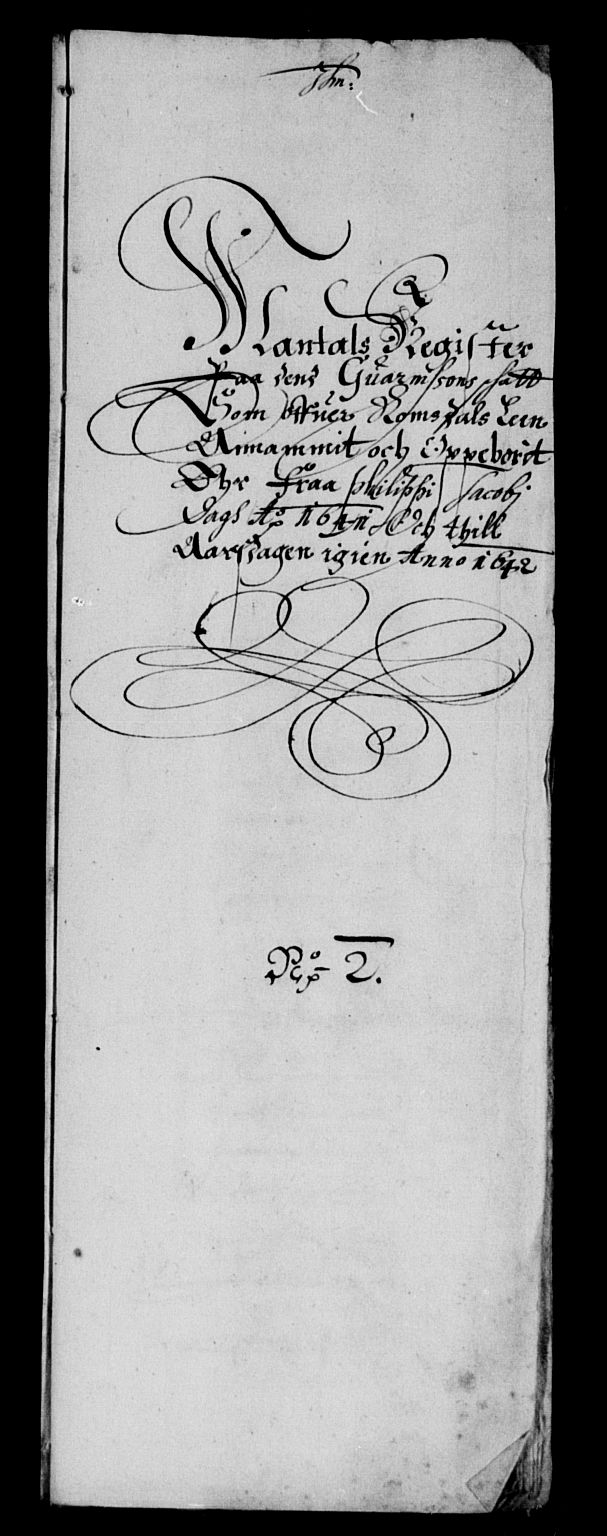 Mantals Register
Paa dend Guarnisons schatt
Som offuer Romsdals Leen
Annammit och Oppebørit
Ehr fraa Philippi Jacobj
Dags Ao 1641 Och thill
Aarsdagen igien Anno 1642
No 2.